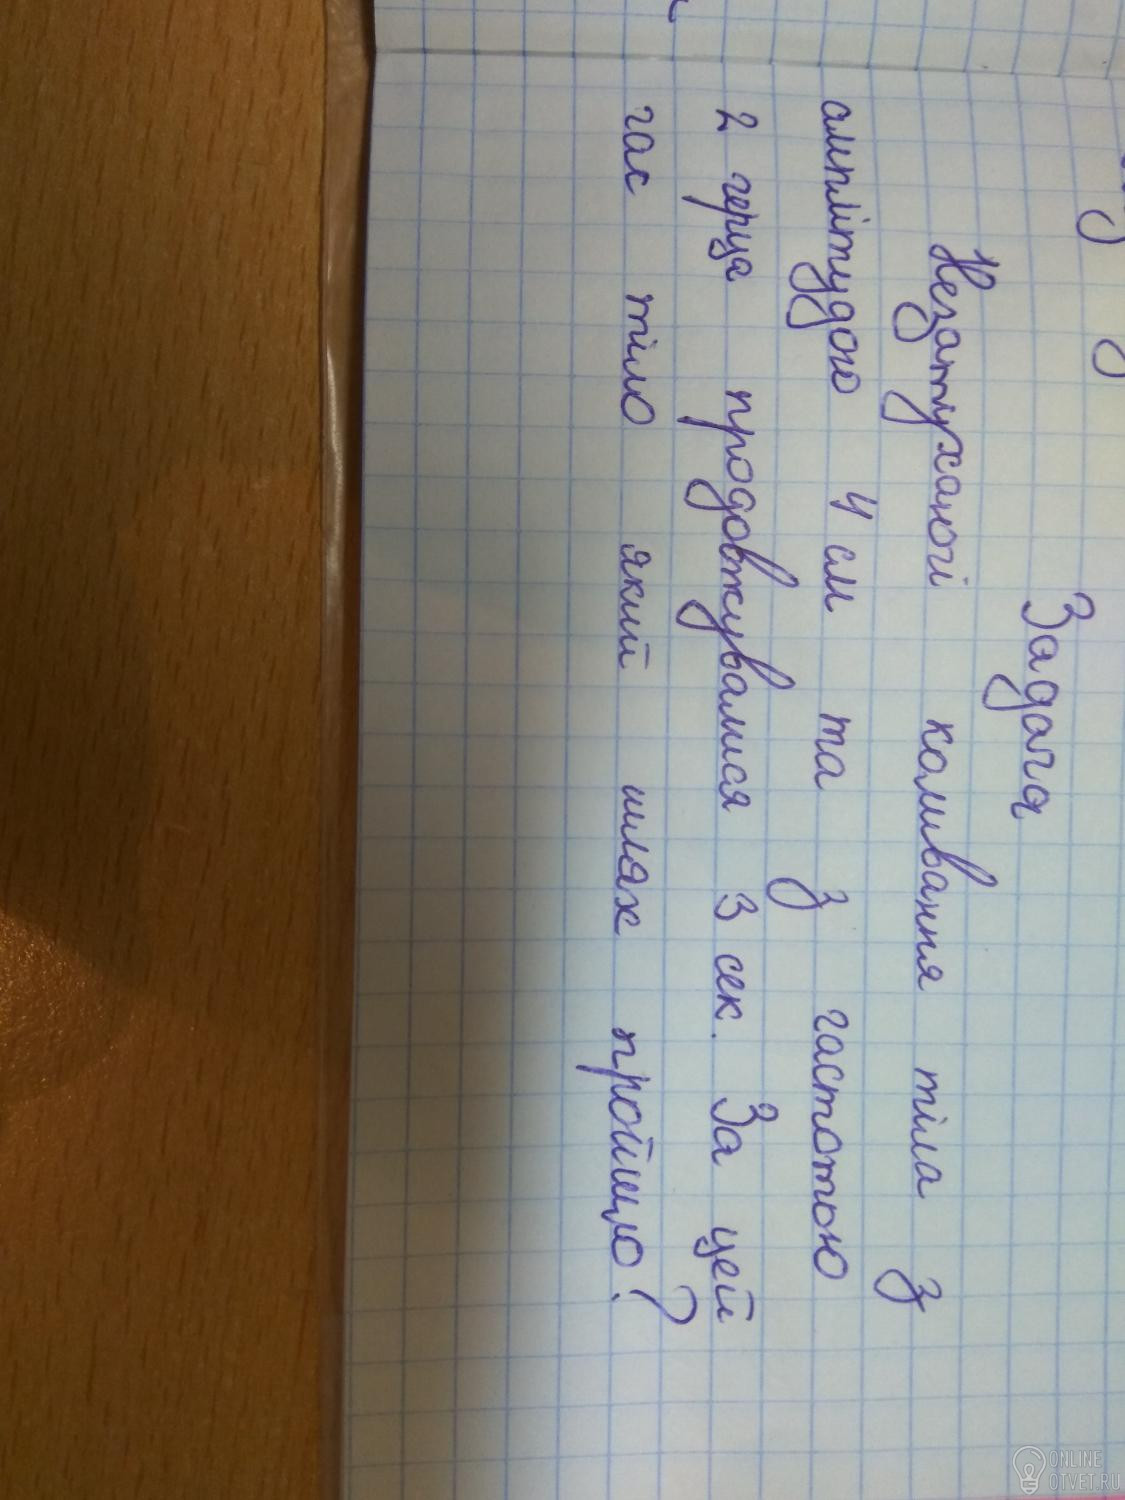 Задача
Незатухаючі коливання тіла з
амплітудою 4 см та з частотою
2 герца продовжувалися 3 сек. За цей
час тіло який шлях пройшло?
ONLINE
OTVET.RU